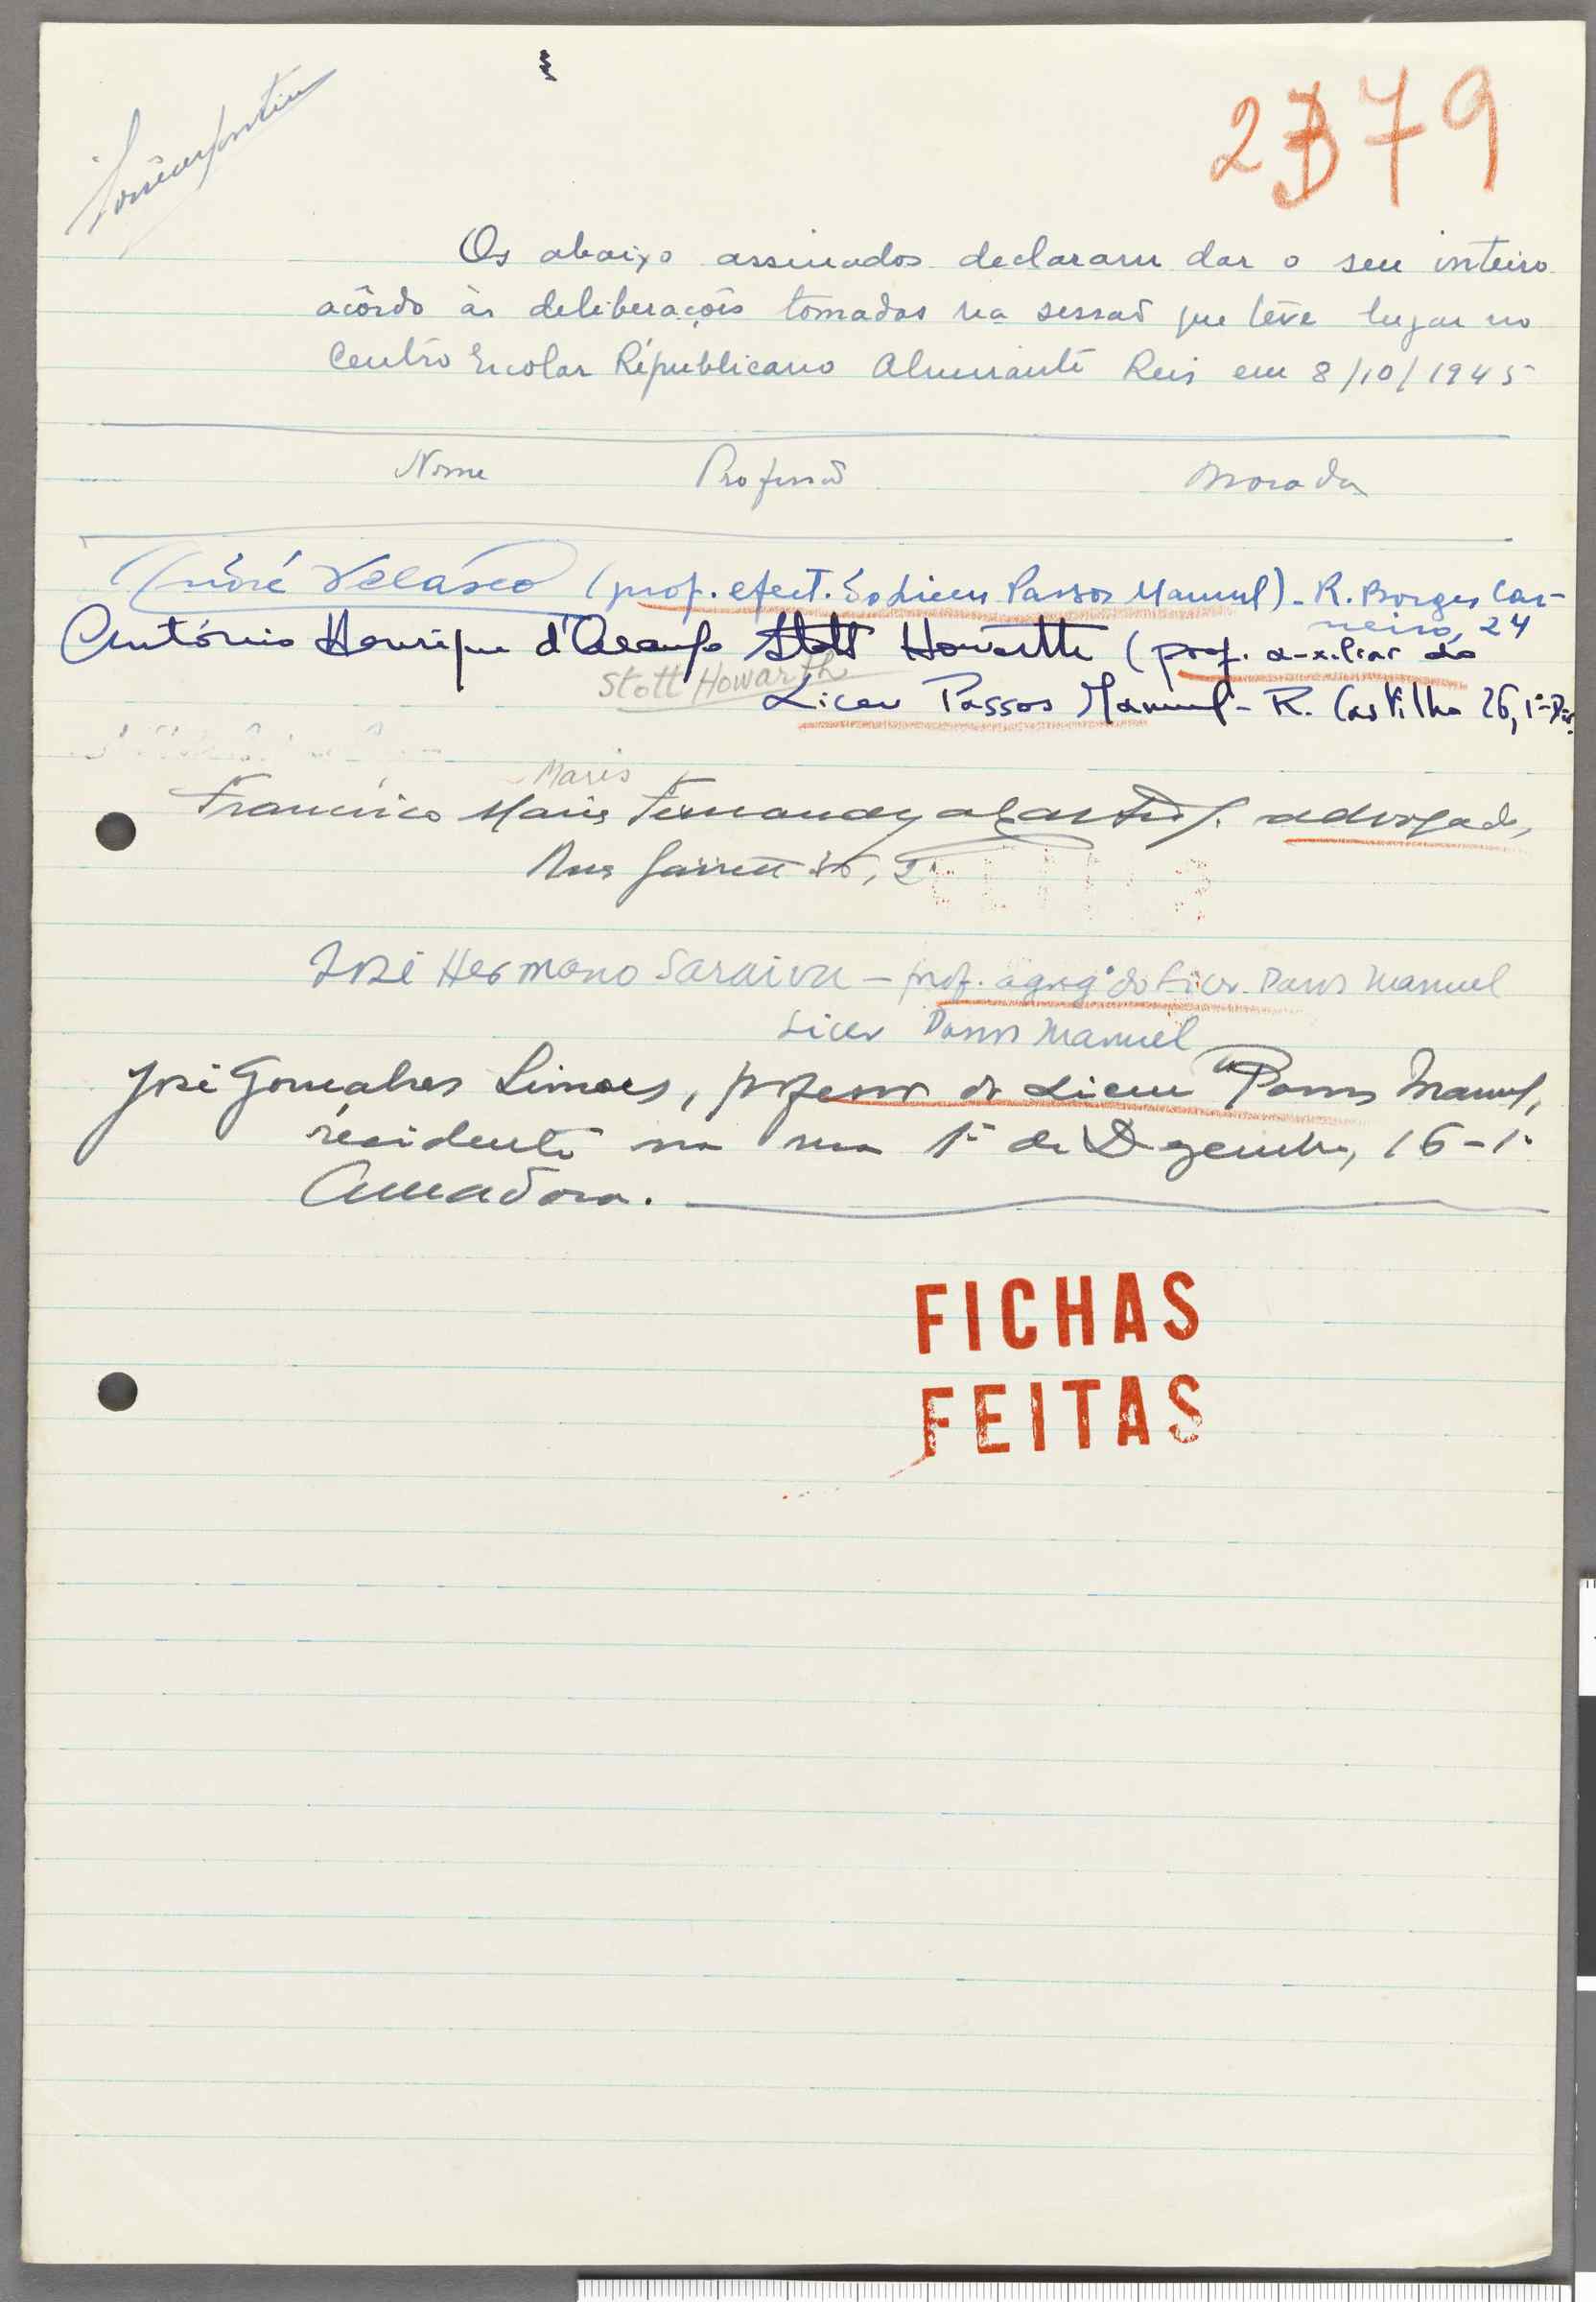 2379
Os abaixo assinados declaram dar o seu inteiro
acôrdo às deliberações tomadas na sessão que teve lugar no
Centro Escolar Républicano Almirante Reis em 8/10/1945
Nome Profissão Morada
André Velasco (prof. efect. do Liceu Passos Manuel) - R. Borges Car-
neiro, 24
António Henrique d'Araujo Stott Howarth (prof. auxiliar do
Stott Howarth
Liceu Passos Manuel - R. Castilho 26, 1º-Dto.
Maris
Francisco Maris Fernandes advogado,
Rua Garrett
José Hermano Saraiva - prof. agregº do Liceu Passos Manuel
Liceu Passos Manuel
José Gonçalves Simões, professor do Liceu Passos Manuel,
residente na rua 1º de Dezembro, 16-1º
Amadora.
FICHAS
FEITAS